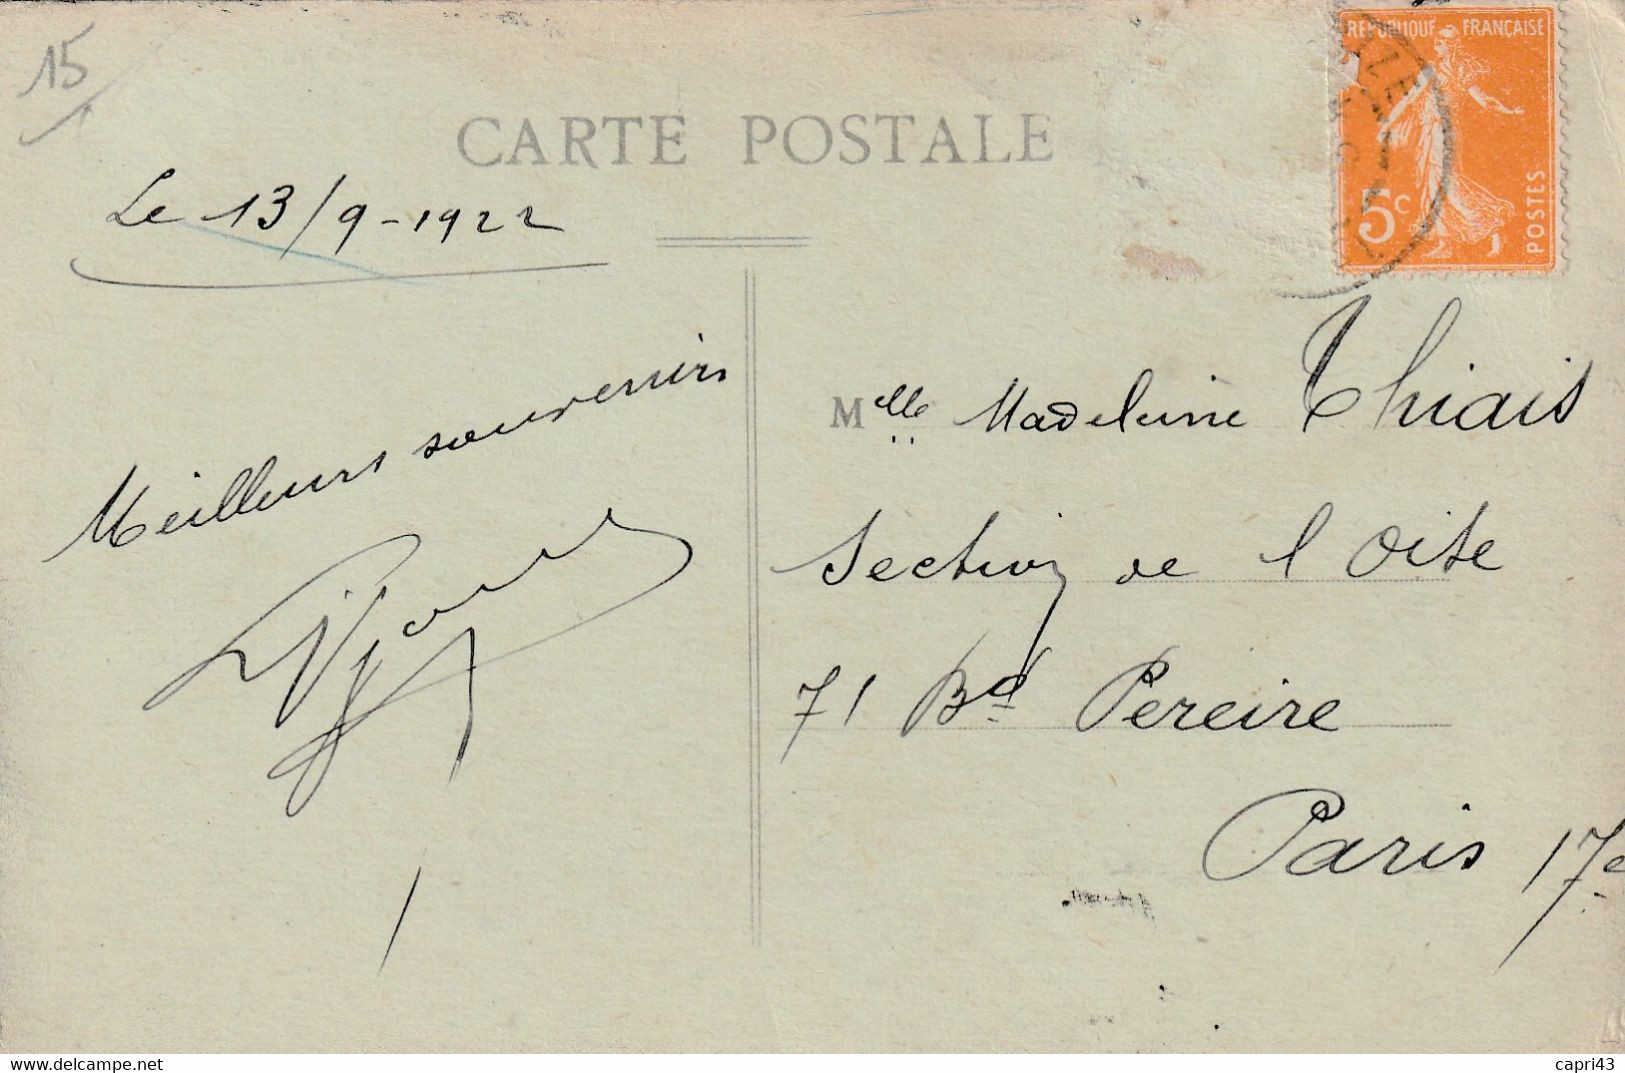 15
CARTE POSTALE
REPUBLIQUE FRANÇAISE
5c
POSTES
Le 13/9-1922
Meilleurs souvenirs
Mlle Madeleine Thiais
Section de l Oise
71 Bd Pereire
Paris 17e
delcampe.net
capri43